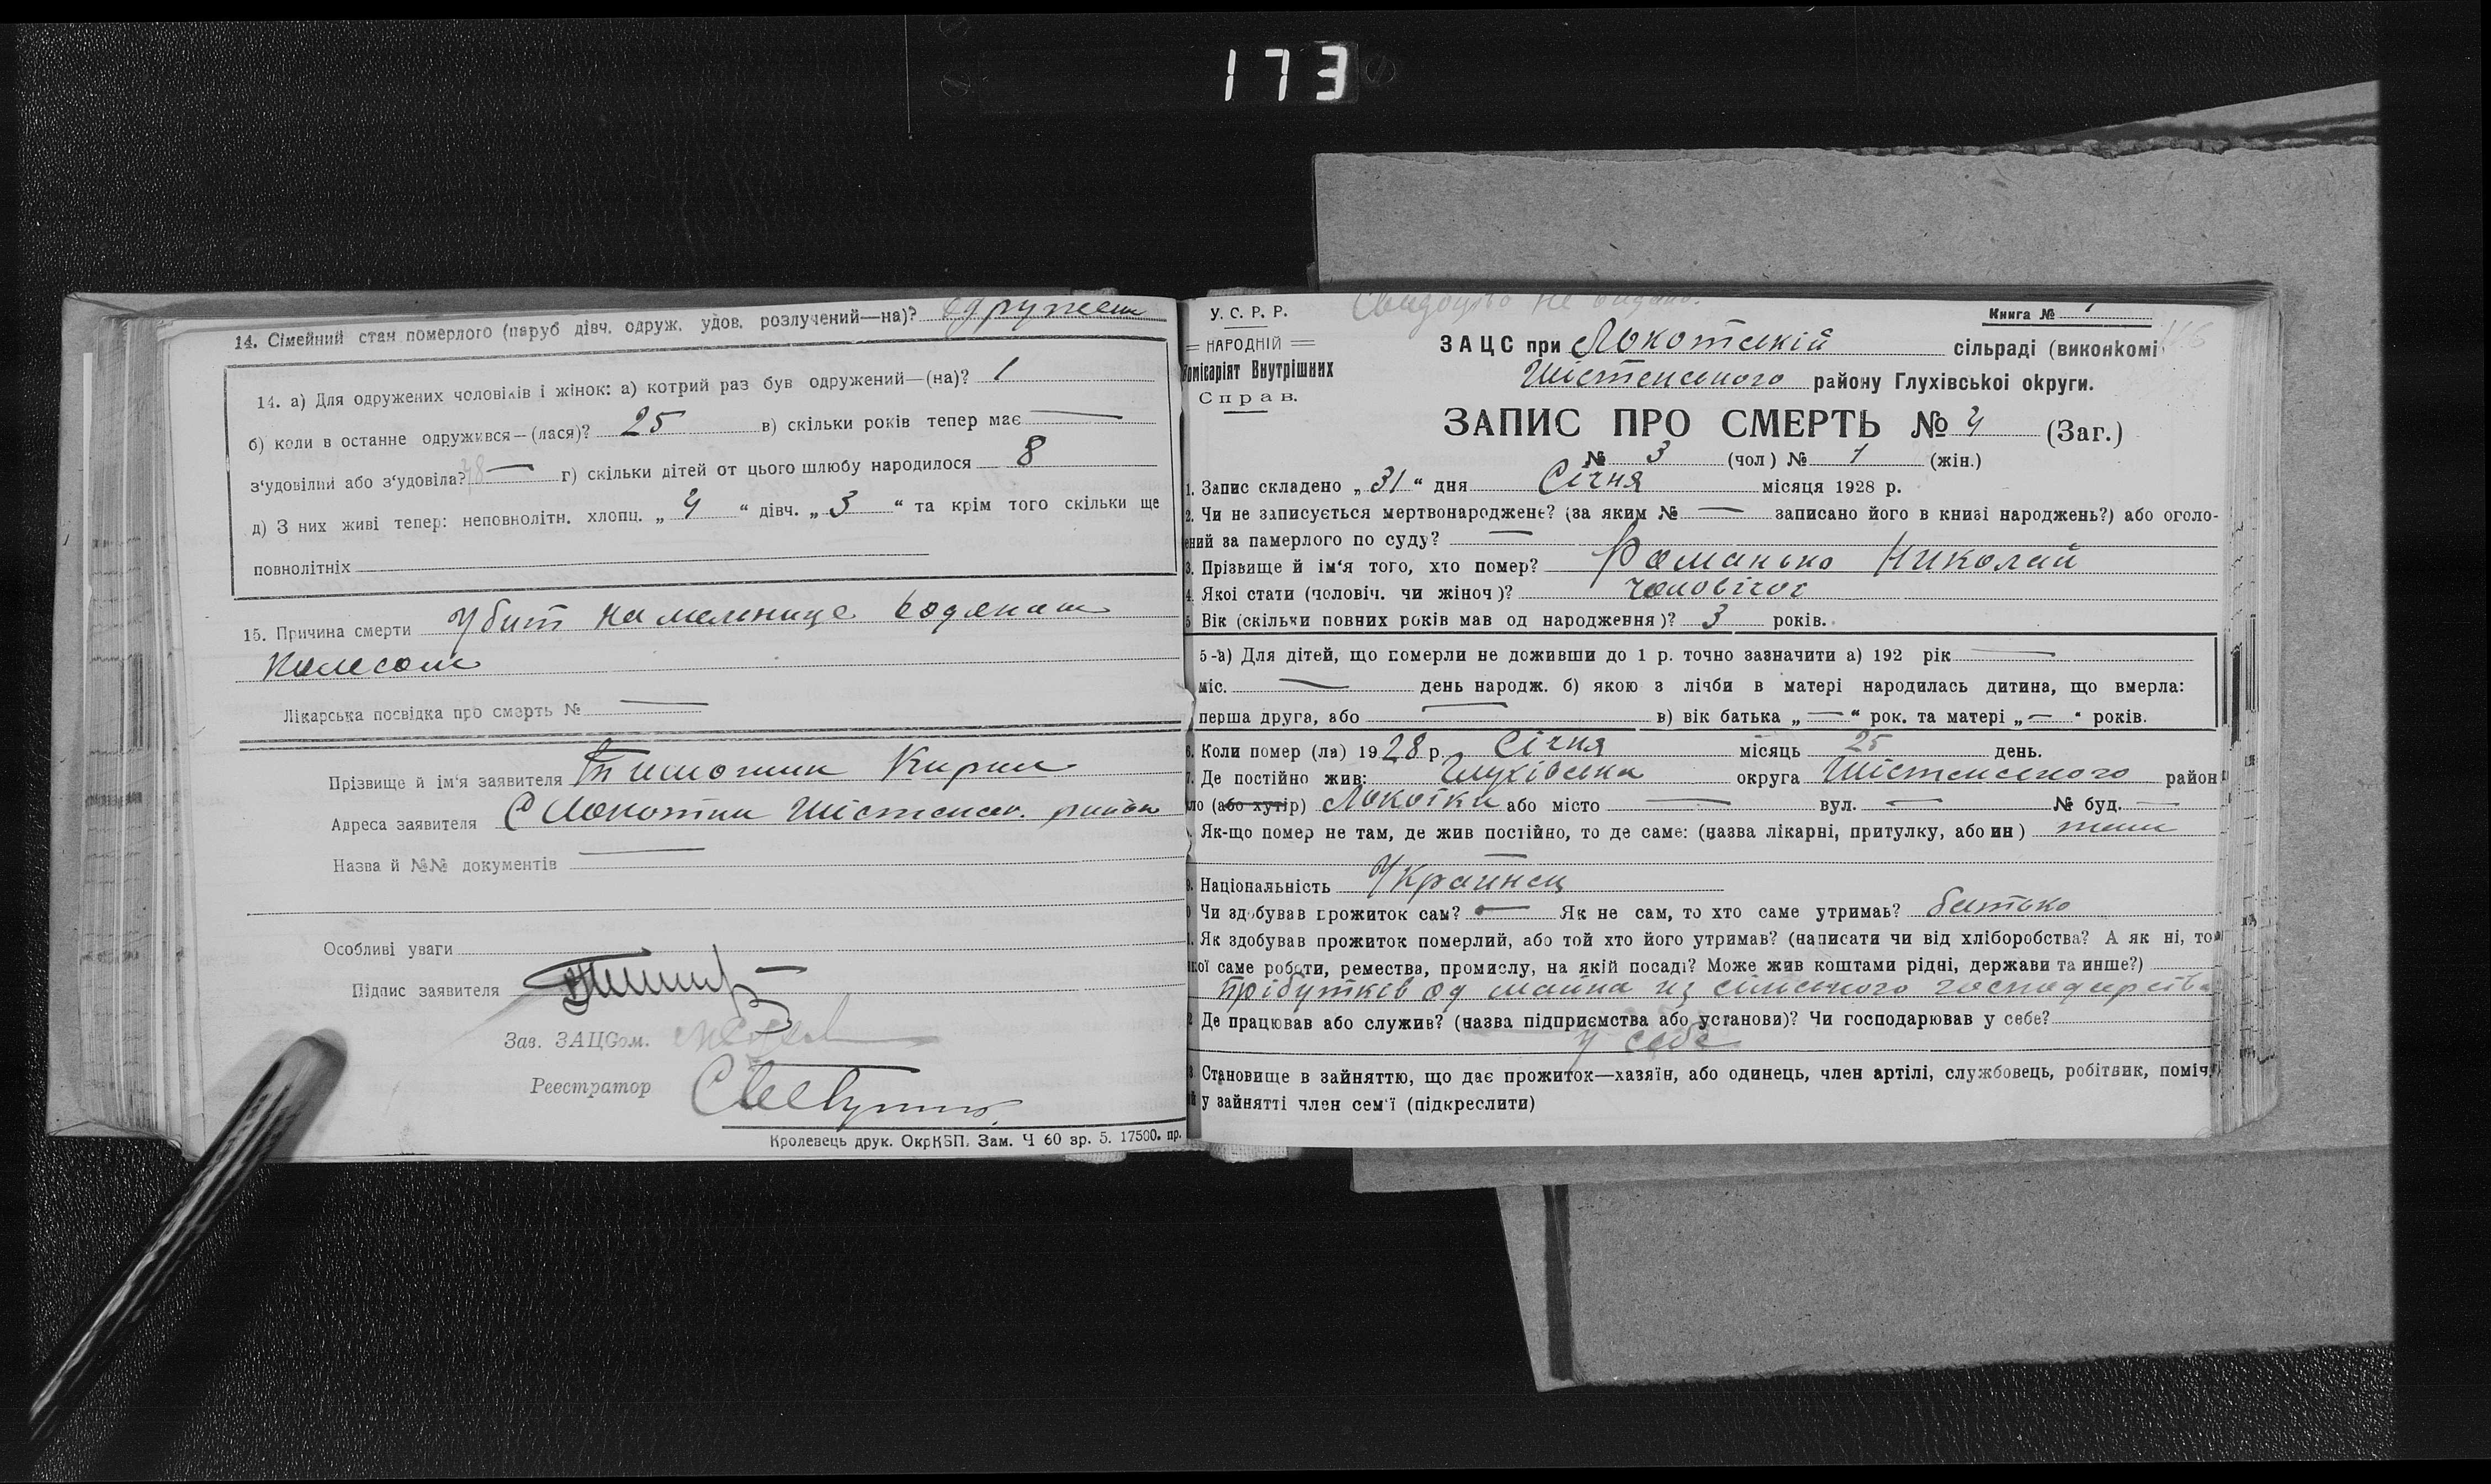 173
14. Сімейний стан померлого (паруб дівч. одруж. удов. розлучений—на)? одружен
14. а) Для одружених чоловіків і жінок: а) котрий раз був одружений—(на)? 1
б) коли в останне одружився—(лася)? 25 в) скільки років тепер має —
з‘удовілий або з‘удовіла? — г) скільки дітей от цього шлюбу народилося 8
д) З них живі тепер: неповнолітн. хлопц. „ 4 “ дівч. „ 3 “ та крім того скільки ще
повнолітніх
15. Причина смерти Убит на мельнице водяным
колесом
Лікарська посвідка про смерть № —
Прізвище й ім‘я заявителя Тимошин Кирил
Адреса заявителя С Локотки Шістенськ. району
Назва й №№ документів —
Особливі уваги
Підпис заявителя
Зав. ЗАЦСом.
Реестратор
Кролевець друк. ОкрКБП. Зам. Ч 60 зр. 5. 17500. пр.
Свидоцтво не видано.
У. С. Р. Р.
Книга № 1
НАРОДНІЙ
ЗАЦС при Локотській сільраді (виконкомі
Комісаріят Внутрішних
Шістенського району Глухівської округи.
Справ.
ЗАПИС ПРО СМЕРТЬ № 4 (Заг.)
№ 3 (чол) № 1 (жін.)
1. Запис складено „ 31 “ дня Січня місяця 1928 р.
2. Чи не записується мертвонароджене? (за яким № — записано його в книзі народжень?) або оголо-
ений за памерлого по суду? —
3. Прізвище й ім‘я того, хто помер? Романько Николай
4. Якої стати (чоловіч. чи жіноч)? чоловічої
5 Вік (скільки повних років мав од народження)? 3 років.
5-а) Для дітей, що померли не доживши до 1 р. точно зазначити а) 192 рік —
міс. — день народж. б) якою з лічби в матері народилась дитина, що вмерла:
перша друга, або — в) вік батька „ — “ рок. та матері „ — “ років.
6. Коли помер (ла) 1928 р. Січня місяць 25 день.
7. Де постійно жив: Глухівська округа Шістенського район
ло (або хутір) Локотки або місто — вул. — № буд. —
Як-що помер не там, де жив постійно, то де саме: (назва лікарні, притулку, або ин) там
9. Національність Украинец
Чи здобував прожиток сам? — Як не сам, то хто саме утримав? батько
1. Як здобував прожиток померлий, або той хто його утримав? (написати чи від хліборобства? А як ні, то
кої саме роботи, ремества, промислу, на якій посаді? Може жив коштами рідні, держави та инше?)
прібутків од майна из сільского господарства
2 Де працював або служив? (назва підприємства або установи)? Чи господарював у себе?
у себе
3 Становище в зайняттю, що дає прожиток—хазяїн, або одинець, член артілі, службовець, робітник, поміч.
й у зайнятті член сем‘ї (підкреслити)